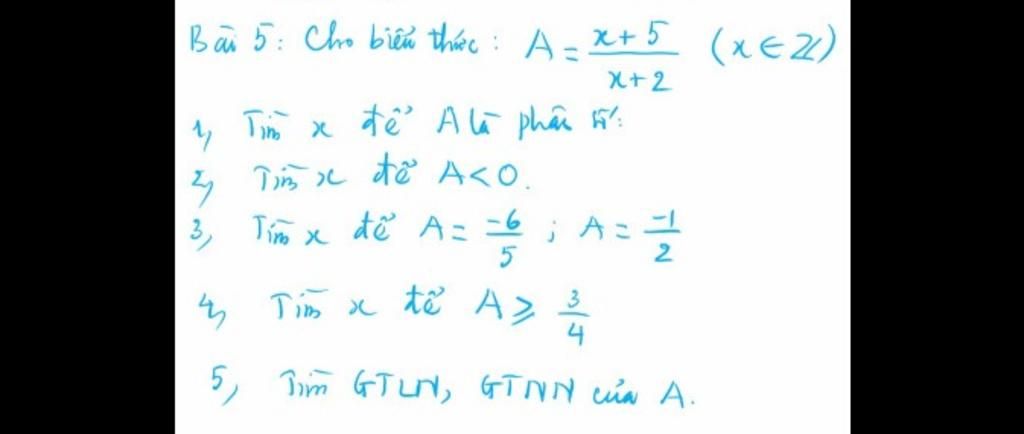 Bài 5: Cho biểu thức: A = \frac{x+5}{x+2} (x ∈ ℤ)
1, Tìm x để A là phân số:
2, Tìm x để A < 0.
3, Tìm x để A = \frac{-6}{5} ; A = \frac{-1}{2}
4, Tìm x để A ≥ \frac{3}{4}
5, Tìm GTLN, GTNN của A.